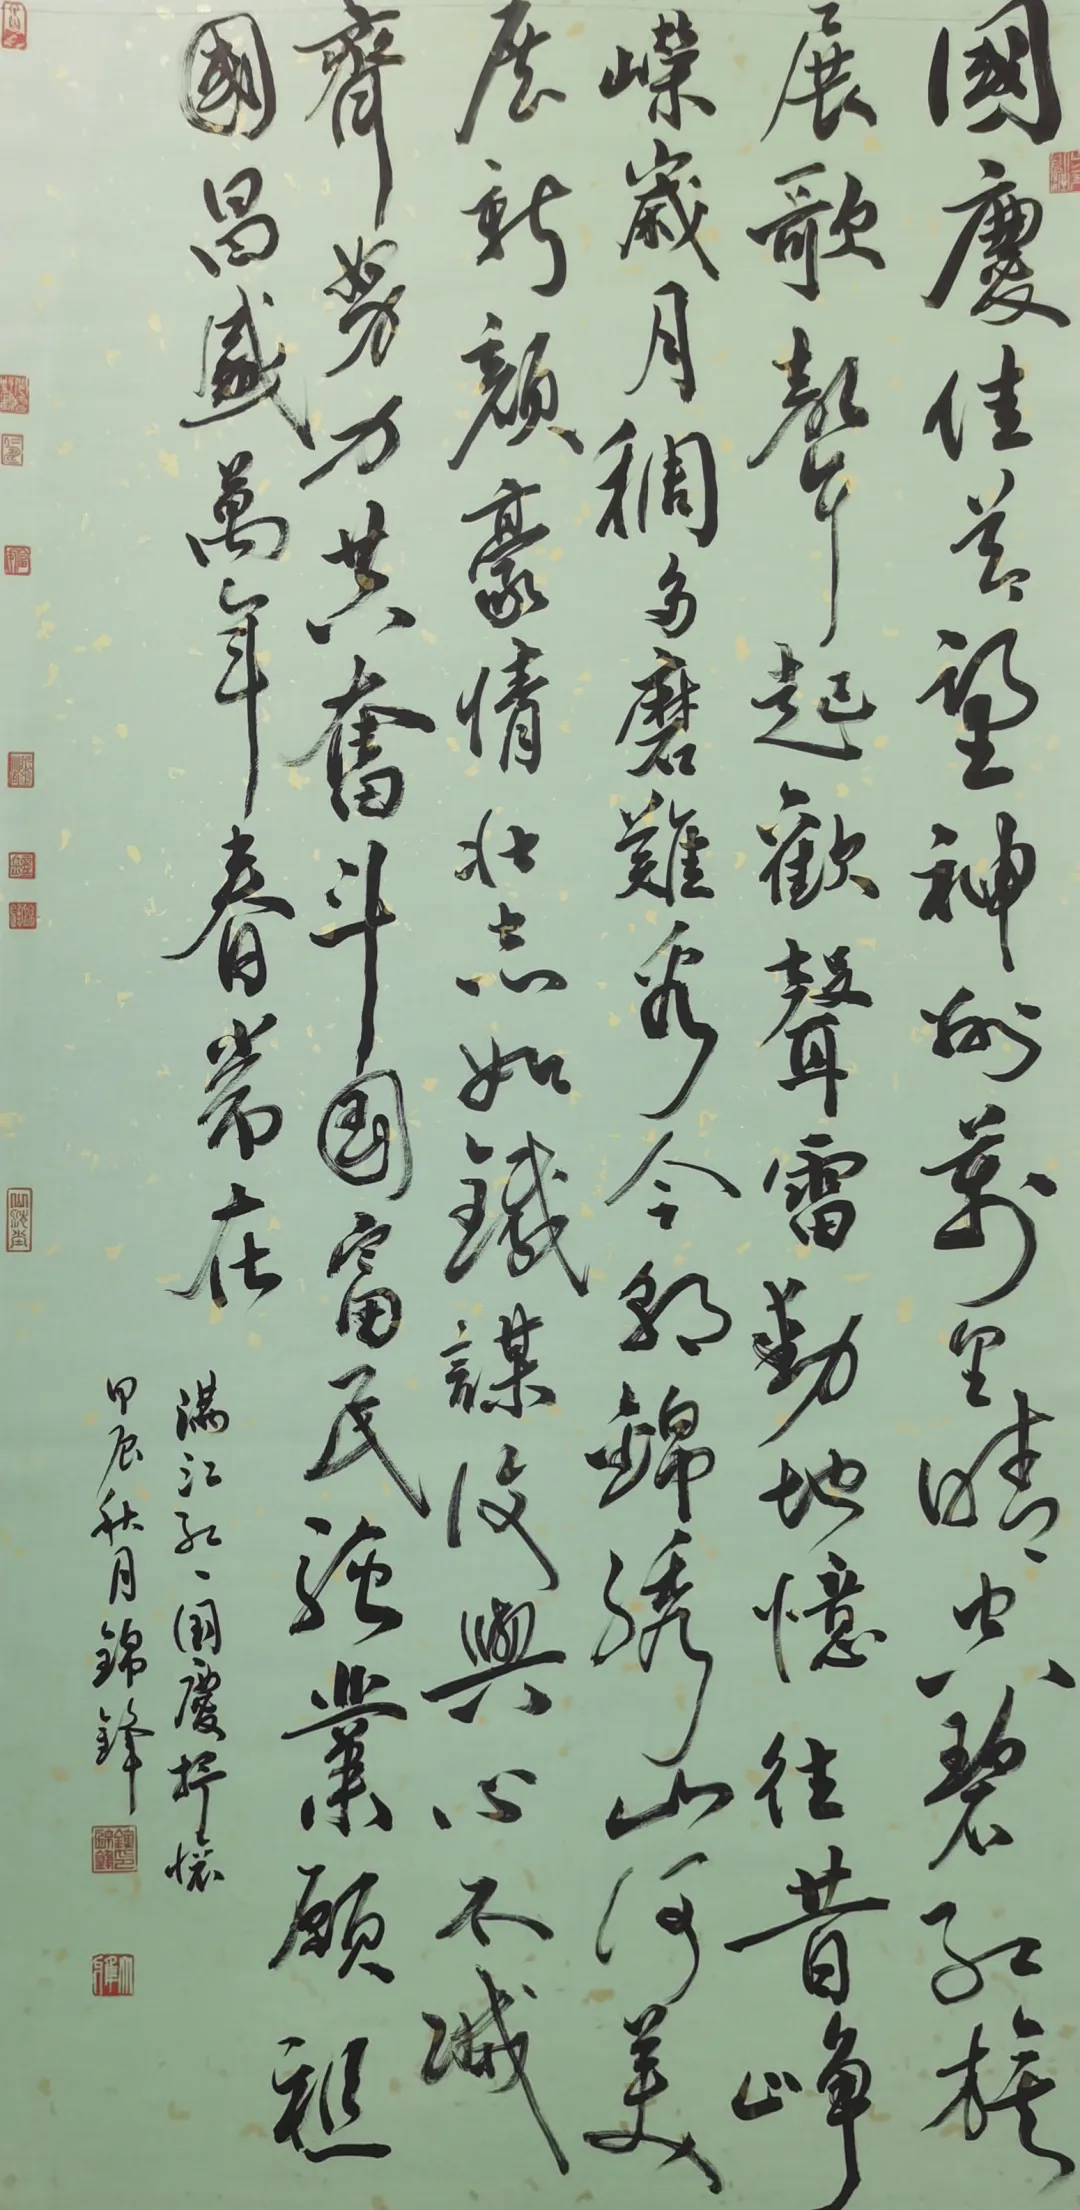 國慶佳节望神州萬里晴空碧紅旗
展歌聲起歡聲雷動地憶往昔崢
嶸歲月稠多磨難看今朝錦綉山河美
展新顏豪情壮志如鐵謀復興心不減
齊努力共奮斗国富民強業願祖
國昌盛萬年春常在
满江紅、国慶抒懷
甲辰秋月錦鋒